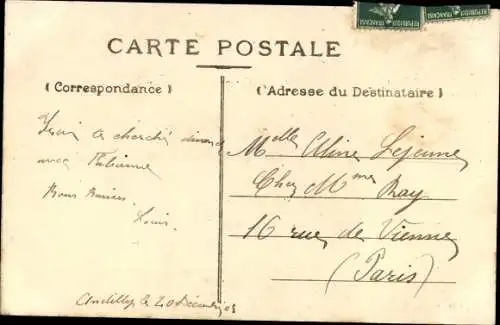 REPUBLIQUE FRANÇAISE
CARTE POSTALE
( Correspondance )
( Adresse du Destinataire )
J'irai te chercher dimanche
avec Fabienne
Bons Baisers.
Louis.
Andilly le 20 Décembre 08
Melle Aline Lejeune
Chez Mme Ray
16 rue de Vienne
(Paris)